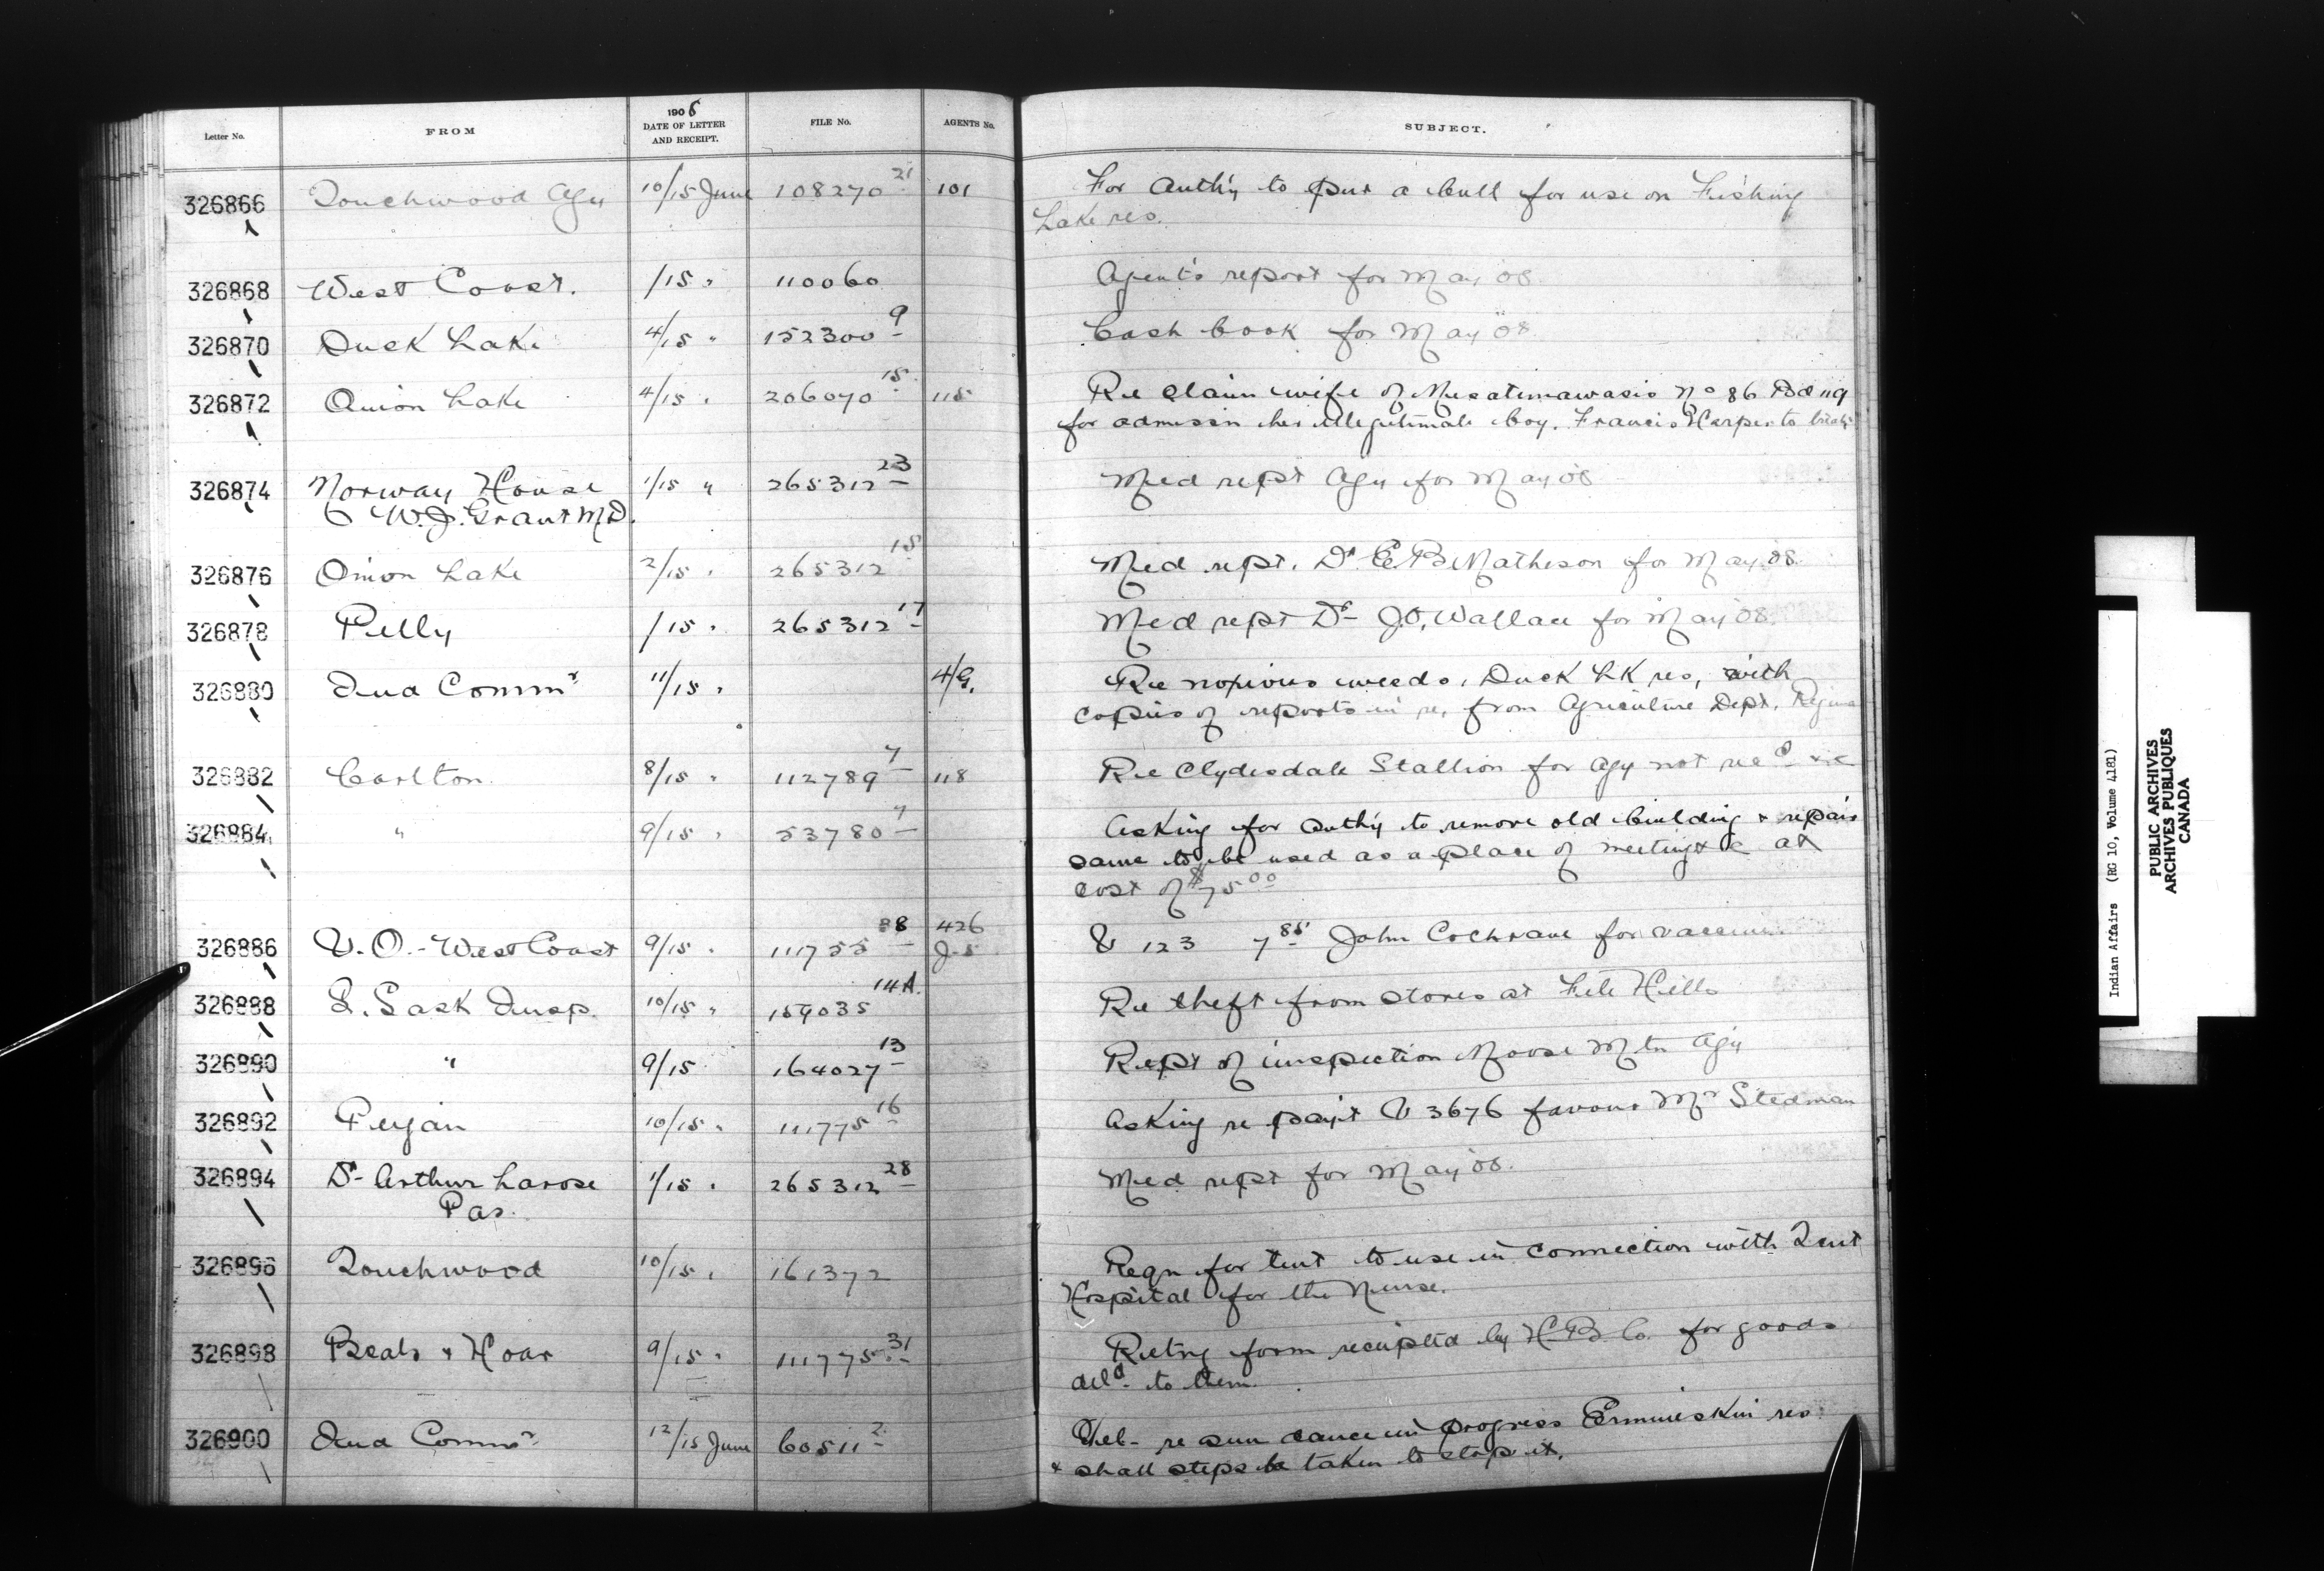 Letter No. FROM 1908 DATE OF LETTER AND RECEIPT. FILE No. AGENTS No. SUBJECT.
326866 Touchwood Agy 10/15 June 108270 21 101 For Auth'y to pur a bull for use on Fishing
Lake res.
326868 West Coast. /15 " 110060 Agent's report for May '08.
326870 Duck Lake 4/15 " 152300 9 Cash book for May '08
326872 Onion Lake 4/15 " 206070 15 115 Re claim wife of No 86 Bd 119
for admissn her illegitimate boy, Francis Harper to
326874 Norway House 1/15 " 265312 23 Med rept Agy for May '08
W.J. Grant MD.
326876 Onion Lake 2/15 " 265312 15 Med rept. Dr E.B. Matheson for May '08.
326878 Pelly /15 " 265312 17 Med rept Dr J.O. Wallace for May '08.
326880 Ind Commr 11/15 " 4/G. Re noxious weeds, Duck Lk res, with
copies of reports in re, from Agriculture Dept, Regina
326882 Carlton 8/15 " 112789 7 118 Re Clydesdale Stallion for Agy not recd &c
326884 " 9/15 " 53780 7 Asking for auth'y to remove old building & repair
same to be used as a place of meeting &c at
cost of $75 00
326886 V.O. - West Coast 9/15 " 111755 88 426 J-5 V 123 7 85 John Cochrane for vaccine
326888 S. Sask Insp. 10/15 " 159035 14A. Re theft from stores at File Hills
326890 " 9/15 164027 13 Rept of inspection Moose Mtn Agy
326892 Peigan 10/15 " 111775 16 Asking re pay't V 3676 favour Mr Stedman
326894 Dr Arthur Larose 1/15 " 265312 28 Med rept for May '08.
Pas.
326896 Touchwood 10/15 " 161372 Reqn for tent to use in connection with Tent
Hospital for the Nurse.
326898 Beals & Hoar 9/15 " 111775 31 Retng form receipted by H.B. Co. for goods
deld to them.
326900 Ind Commr 12/15 June 60511 2 Tel- re sun dance in progress Ermineskin res
& shall steps be taken to stop it.
Indian Affairs (RG 10, Volume 4181)
PUBLIC ARCHIVES
ARCHIVES PUBLIQUES
CANADA